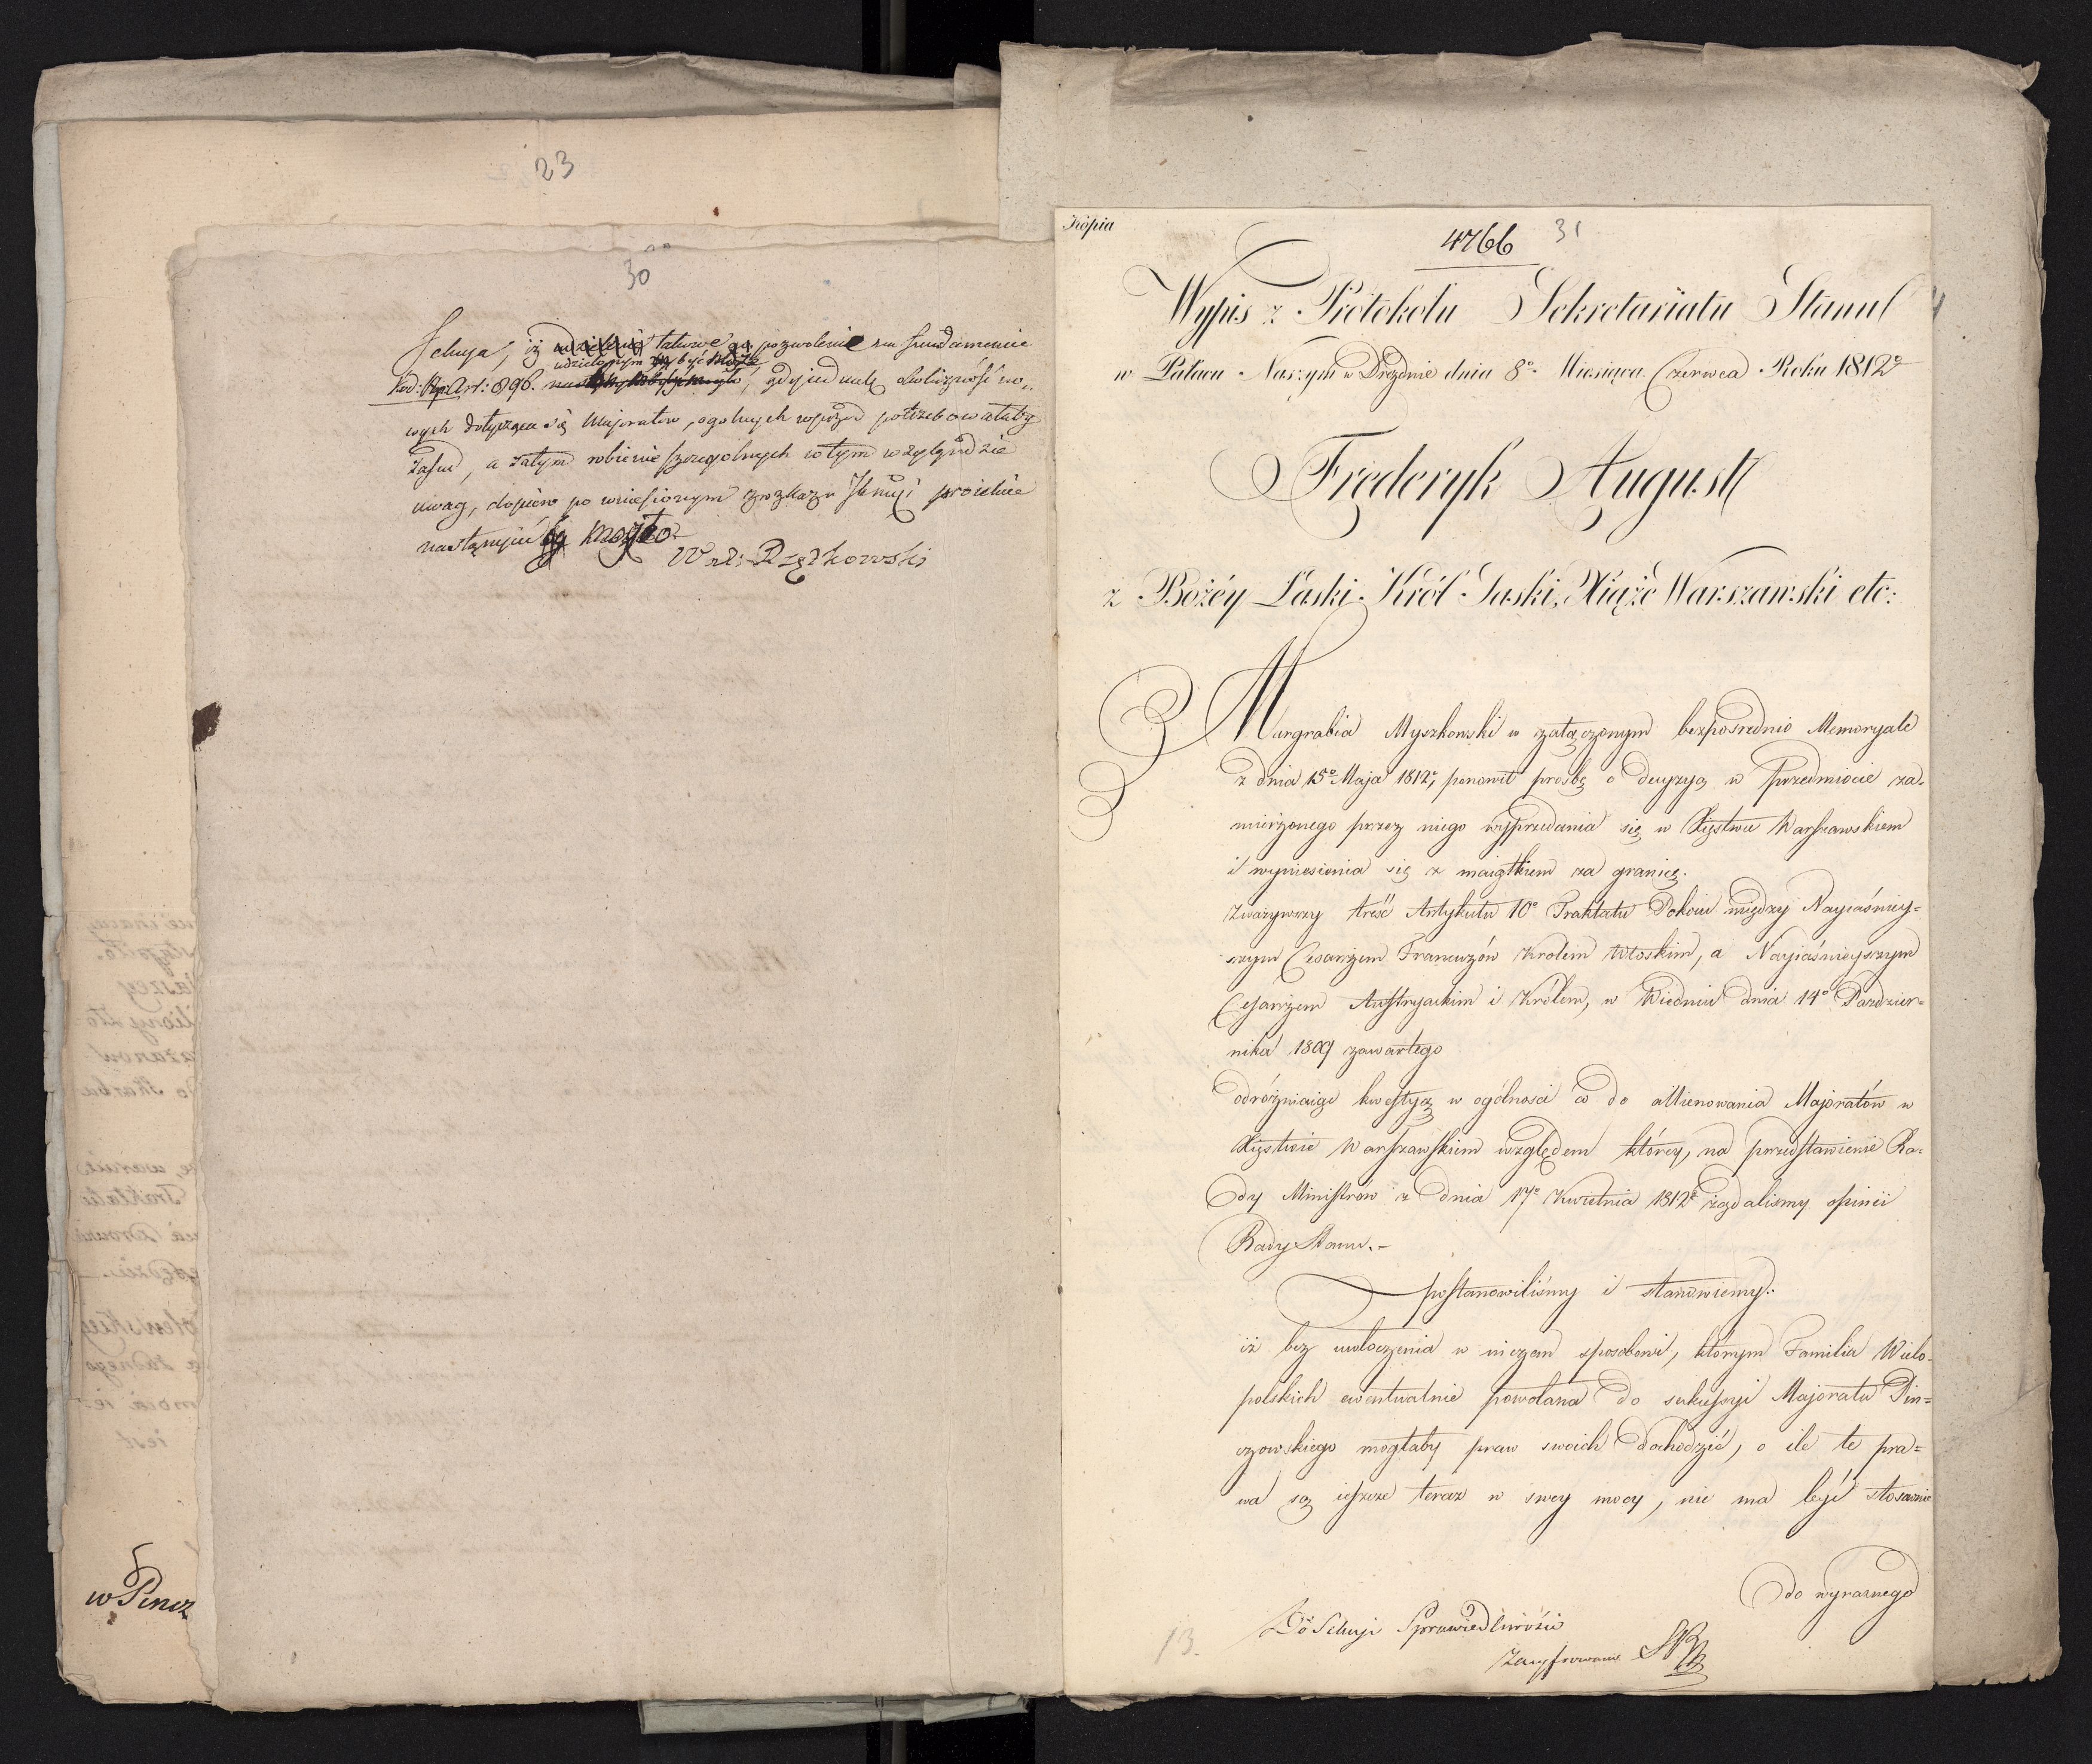 23
30
Sekcya, iż takowe pozwolenie na fundamencie
Kod: Art: 896. udzielonym być może, gdy jednak okoliczność no„
wych dotyczącą się Majoratów, ogólnych wprzód potrzebowałaby
Zasad, a zatym robienie szczegolnych w tym względzie
uwag, dopiero po wniesionym z rozkazu JKmci proiekcie
nastąpić mogło
Wal: Rzątkowski
w Pincz
Kopia
4766
31
Wypis z Protokołu Sekretariatu Stanu
w Pałacu Naszym w Dreżdnie dnia 8º Miesiąca Czerwca Roku 1812º
Fryderyk August
z Bożéy Łaski Król Saski, Xiążę Warszawski etc:
Margrabia Myszkowski w załączonym bezpośrednio Memoryale
z dnia 15º Maja 1812º, ponowił prośbę o decyzyą w przedmiocie za-
mierzonego przez niego wyprzedania się w Xięstwie Warszawskiem
i wyniesienia się z maiątkiem za granicę.
Zważywszy treść Artykułu 10º Traktatu Pokoiu między Nayiaśniey=
szym Cesarzem Francuzów Krolem Włoskim, a Nayiaśnieyszym
Cesarzem Austryackim i Królem, w Wiedniu dnia 14º Pazdzier-
nika 1809 zawartego
odróżniaiąc kwestyą w ogólności co do allienowania Majoratów w
Xięstwie Warszawskiem względem którey, na przedstawienie Ra-
dy Ministrów z dnia 17º Kwietnia 1812º żądalismy opinii
Rady Stanu.-
postanowiliśmy i stanowiemy:
iż bez uwłoczenia w niczem sposobowi, którym Familia Wielo-
polskich ewentualnie powołana do sukcessyi Majoratu Pin=
czowskiego mogłaby praw swoich dochodzić, o ile te pra=
wa są ieszcze teraz w swey mocy, nie ma być stosownie
do wyraznego
Do Sekcyi Sprawiedliwości
Zacyfrowano
13.